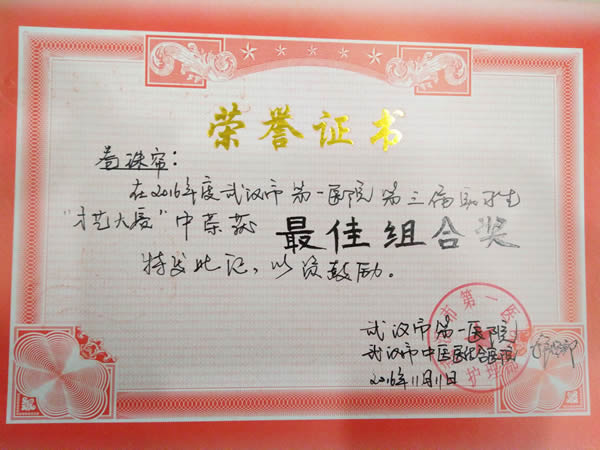 荣誉证书
卷珠帘：
在2016年度武汉市第一医院第三届实习生
"才艺大展"中荣获 最佳组合奖
特发此证，以资鼓励。
武汉市第一医院
武汉市中西医结合医院
2016年11月11日
市第一医
护理部